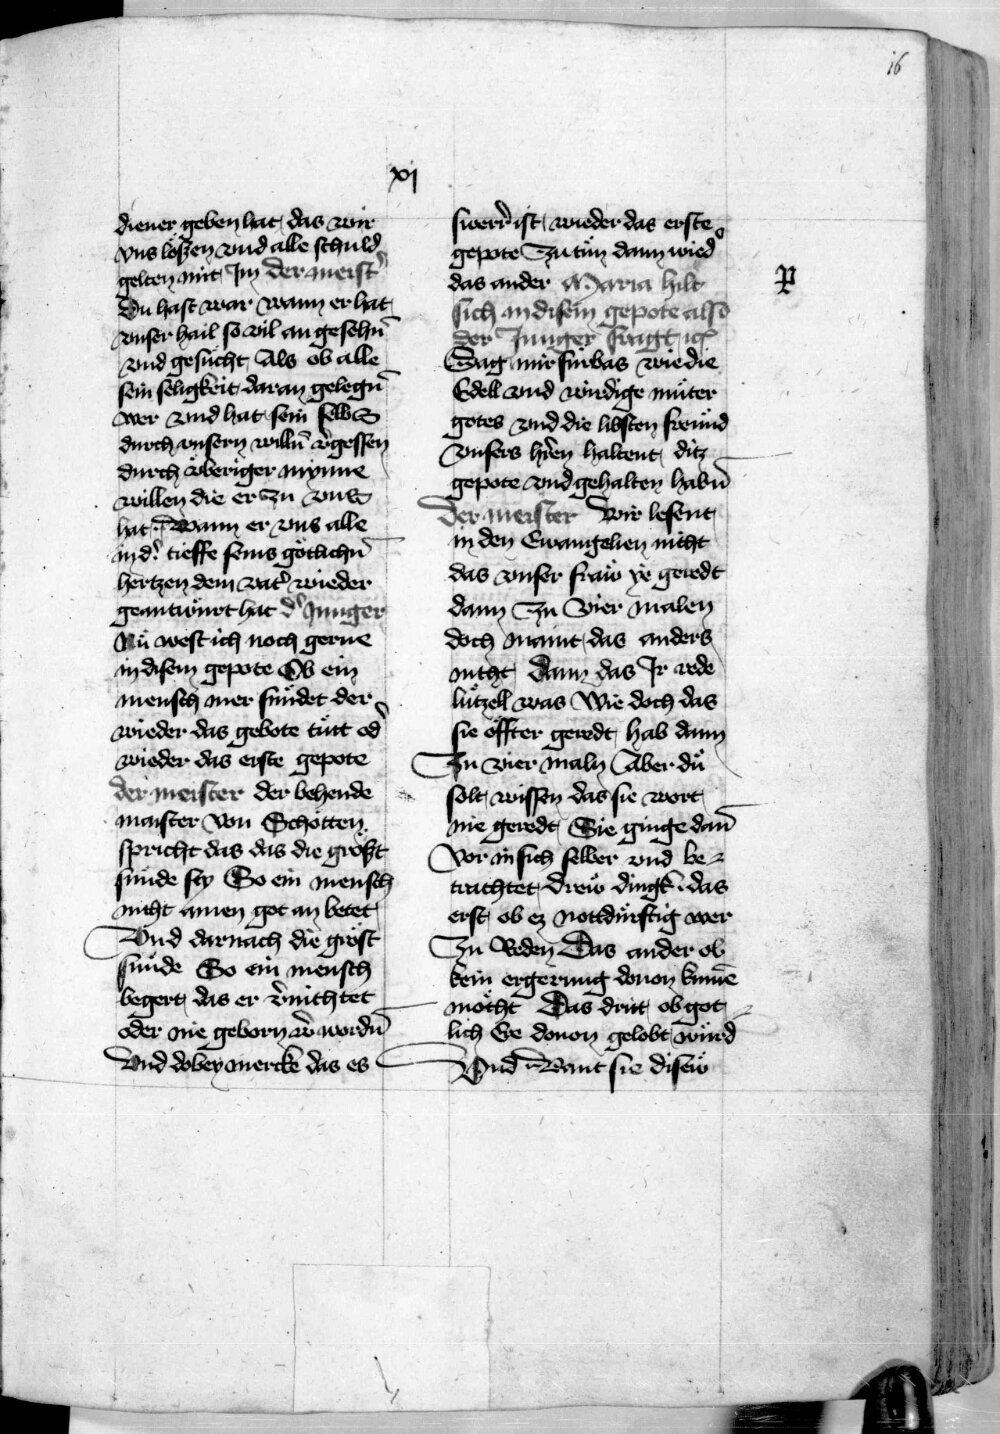 16
xj
diener geben hat das wir
vns lößen vnd alle schuld
gelten mit Im der meist'
Du hast war wann er hat
vnser hail so vil an gesehn̄
vnd gesücht Als ob alle
sein seligkeit daran gelegn̄
wer vnd hat sein selbs
durch vnsern willn̄ v'gessen
durch v̈beriger mynne
willen die er zu vns
hat Wann er vns alle
in d' tieffe seins götlichn̄
hertzen dem vat' wieder
geantwürt hat d' Junger
Nü west ich noch gerne
in disem gepote Ob ein
mensch mer sündet der
wieder das gebote tütt od'
wieder das erste gepote
der meister der behende
maister von Schotten
spricht das das die gröszt
sünde sey So ein mensch
nicht ainen got an betet
Vnd darnach die gröst
sünde So ein mensch
begert das er v'nichtet
oder nie geborn w' wordn̄
Vnd dobey mercke das es
swerr' ist wieder das erste
gepote zu tün dann wied'
das ander Maria hilt
sich in disem gepote also
der Junger fragt
Sag mir fürbas wie die
Edell vnd wirdige müter
gotes vnd die libsten freünd
vnsers hr̄en haltent ditz
gepote vnd gehalten habn̄
der meister Wir lesent
in den Ewangelien nicht
das vnser fraw ye geredt
dann zu vier malen
doch maint das anders
nicht dann das Ir rede
lützell was Wie doch das
sie öffter geredt hab dann
zu vier maln Aber dü
solt wissen das sie wort
nie geredt Sie ginge dan̄
vor in sich selber vnd be
trachtet drew dingk das
erst ob ez nottdürftig wer
zu Reden Das ander ob
kein ergerung douon kum̄e
möcht Das drit ob got
lich Ee douon gelobt würd
Vnd Want sie disew